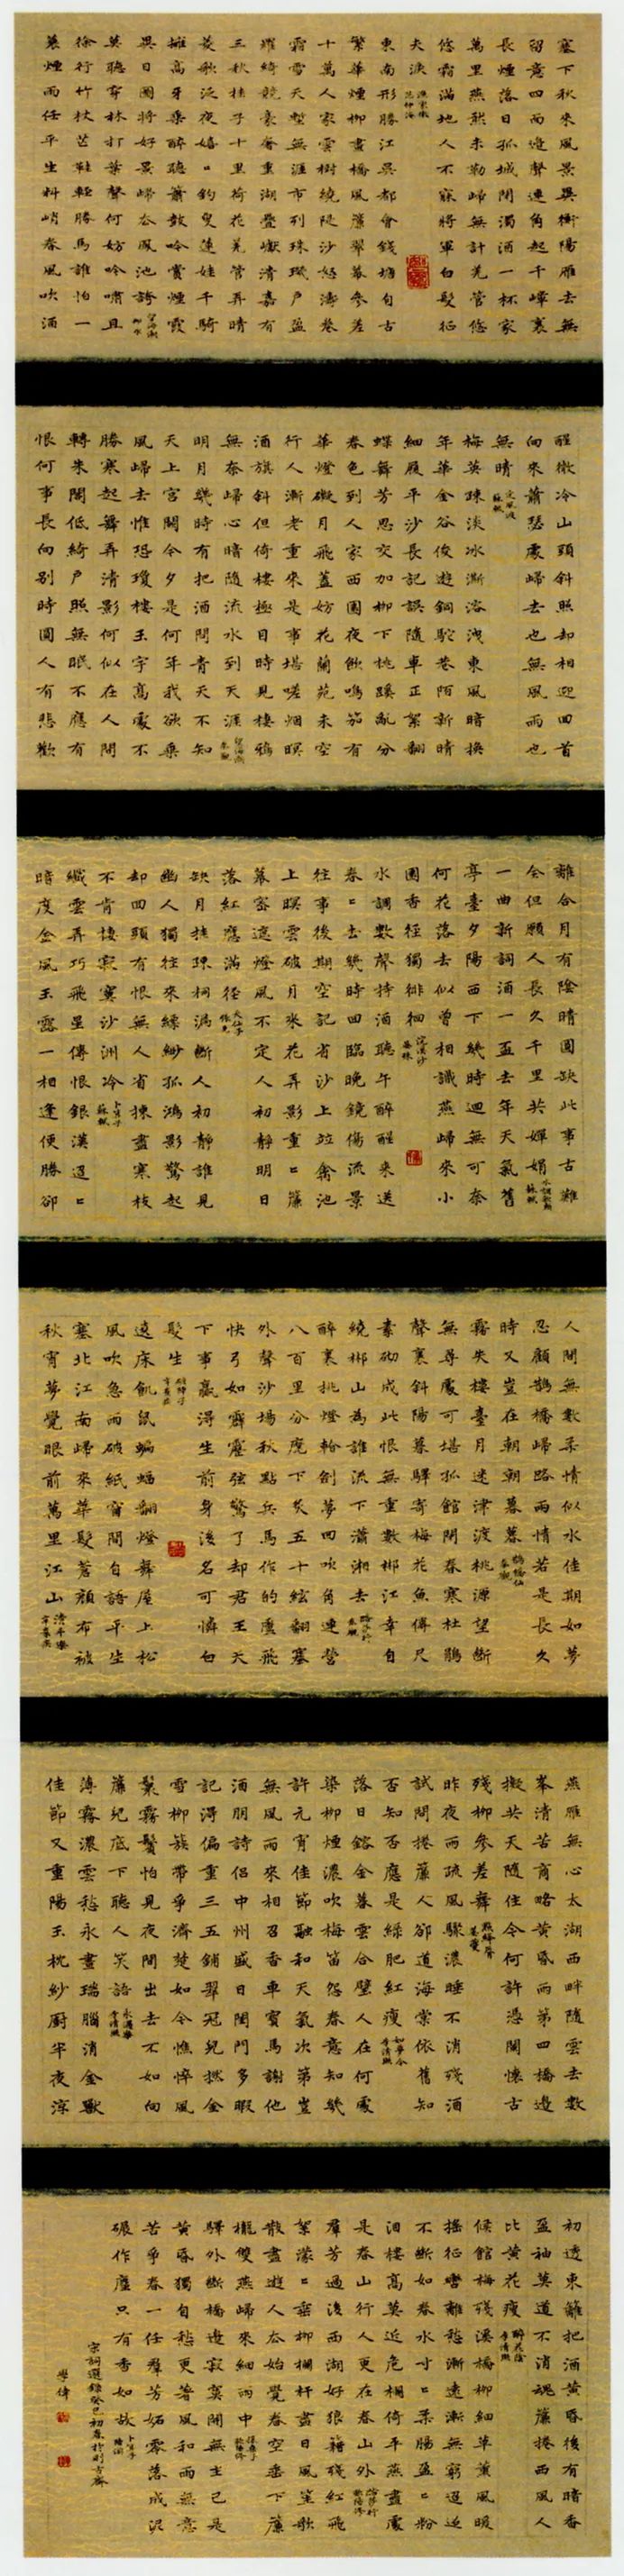 塞下秋來風景異衡陽雁去無
留意四面邊聲連角起千嶂裏
長煙落日孤城閉濁酒一杯家
萬里燕然未勒歸無計羌管悠
悠霜滿地人不寐將軍白髮征
夫淚 漁家傲 范仲淹
東南形勝江吳都會錢塘自古
繁華煙柳畫橋風簾翠幕參差
十萬人家雲樹繞隄沙怒濤卷
霜雪天塹無涯市列珠璣戶盈
羅綺競豪奢重湖疊巘清嘉有
三秋桂子十里荷花羌管弄晴
菱歌泛夜嬉〻釣叟蓮娃千騎
擁高牙乘醉聽簫鼓吟賞煙霞
異日圖將好景歸去鳳池誇 望海潮 柳永
莫聽穿林打葉聲何妨吟嘯且
徐行竹杖芒鞋輕勝馬誰怕一
蓑煙雨任平生料峭春風吹酒
醒微冷山頭斜照却相迎回首
向來蕭瑟處歸去也無風雨也
無晴 定風波 蘇軾
梅英疎淡冰澌溶洩東風暗換
年華金谷俊遊銅駝巷陌新晴
細履平沙長記誤隨車正絮翻
蝶舞芳思交加柳下桃蹊亂分
春色到人家西園夜飲鳴笳有
華燈礙月飛蓋妨花蘭苑未空
行人漸老重來是事堪嗟烟暝
酒旗斜但倚樓極目時見棲鴉
無奈歸心暗隨流水到天涯 望海潮 秦觀
明月幾時有把酒問青天不知
天上宮闕今夕是何年我欲乘
風歸去惟恐瓊樓玉宇高處不
勝寒起舞弄清影何似在人間
轉朱閣低綺戶照無眠不應有
恨何事長向别時圓人有悲歡
離合月有陰晴圓缺此事古難
全但願人長久千里共嬋娟 水調歌頭 蘇軾
一曲新詞酒一盃去年天氣舊
亭臺夕陽西下幾時迴無可奈
何花落去似曾相識燕歸來小
園香徑獨徘徊 浣溪沙 晏殊
水調數聲持酒聽午醉醒來送
春〻去幾時回臨晚鏡傷流景
往事後期空記省沙上竝禽池
上暝雲破月來花弄影重〻簾
幕密遮燈風不定人初靜明日
落紅應滿徑 天仙子 張先
缺月挂疎桐漏斷人初靜誰見
幽人獨往來縹緲孤鴻影驚起
却回頭有恨無人省揀盡寒枝
不肯棲寂寞沙洲冷 卜算子 蘇軾
纖雲弄巧飛星傳恨銀漢迢〻
暗度金風玉露一相逢便勝卻
人間無數柔情似水佳期如夢
忍顧鵲橋歸路兩情若是長久
時又豈在朝朝暮暮 鵲橋仙 秦觀
霧失樓臺月迷津渡桃源望斷
無尋處可堪孤館閉春寒杜鵑
聲裏斜陽暮驛寄梅花魚傳尺
素砌成此恨無重數郴江幸自
繞郴山為誰流下瀟湘去 踏莎行 秦觀
醉裏挑燈看劍夢回吹角連營
八百里分麾下炙五十絃翻塞
外聲沙場秋點兵馬作的盧飛
快弓如霹靂弦驚了却君王天
下事贏得生前身後名可憐白
髮生 破陣子 辛棄疾
遶床飢鼠蝙蝠翻燈舞屋上松
風吹急雨破紙窗間自語平生
塞北江南歸來華髮蒼顏布被
秋宵夢覺眼前萬里江山 清平樂 辛棄疾
燕雁無心太湖西畔隨雲去數
峯清苦商略黃昏雨第四橋邊
擬共天隨住今何許憑闌懷古
殘柳參差舞 點絳脣 姜夔
昨夜雨疏風驟濃睡不消殘酒
試問捲簾人卻道海棠依舊知
否知否應是綠肥紅瘦 如夢令 李清照
落日鎔金暮雲合璧人在何處
染柳煙濃吹梅笛怨春意知幾
許元宵佳節融和天氣次第豈
無風雨來相召香車寶馬謝他
酒朋詩侶中州盛日閨門多暇
記得偏重三五鋪翠冠兒撚金
雪柳簇帶爭濟楚如今憔悴風
鬟霧鬢怕見夜間出去不如向
簾兒底下聽人笑語 永遇樂 李清照
薄霧濃雲愁永晝瑞腦消金獸
佳節又重陽玉枕紗廚半夜涼
初透東籬把酒黃昏後有暗香
盈袖莫道不消魂簾捲西風人
比黃花瘦 醉花陰 李清照
候館梅殘溪橋柳細草薰風暖
搖征轡離愁漸遠漸無窮迢迢
不斷如春水寸〻柔腸盈〻粉
淚樓高莫近危欄倚平蕪盡處
是春山行人更在春山外 踏莎行 歐陽修
羣芳過後西湖好狼籍殘紅飛
絮濛〻垂柳欄杆盡日風笙歌
散盡遊人去始覺春空垂下簾
櫳雙燕歸來細雨中 採桑子 歐陽修
驛外斷橋邊寂寞開無主已是
黃昏獨自愁更著風和雨無意
苦爭春一任羣芳妬零落成泥
碾作塵只有香如故 卜算子 陸游
宋詞選錄癸巳初春於
學偉